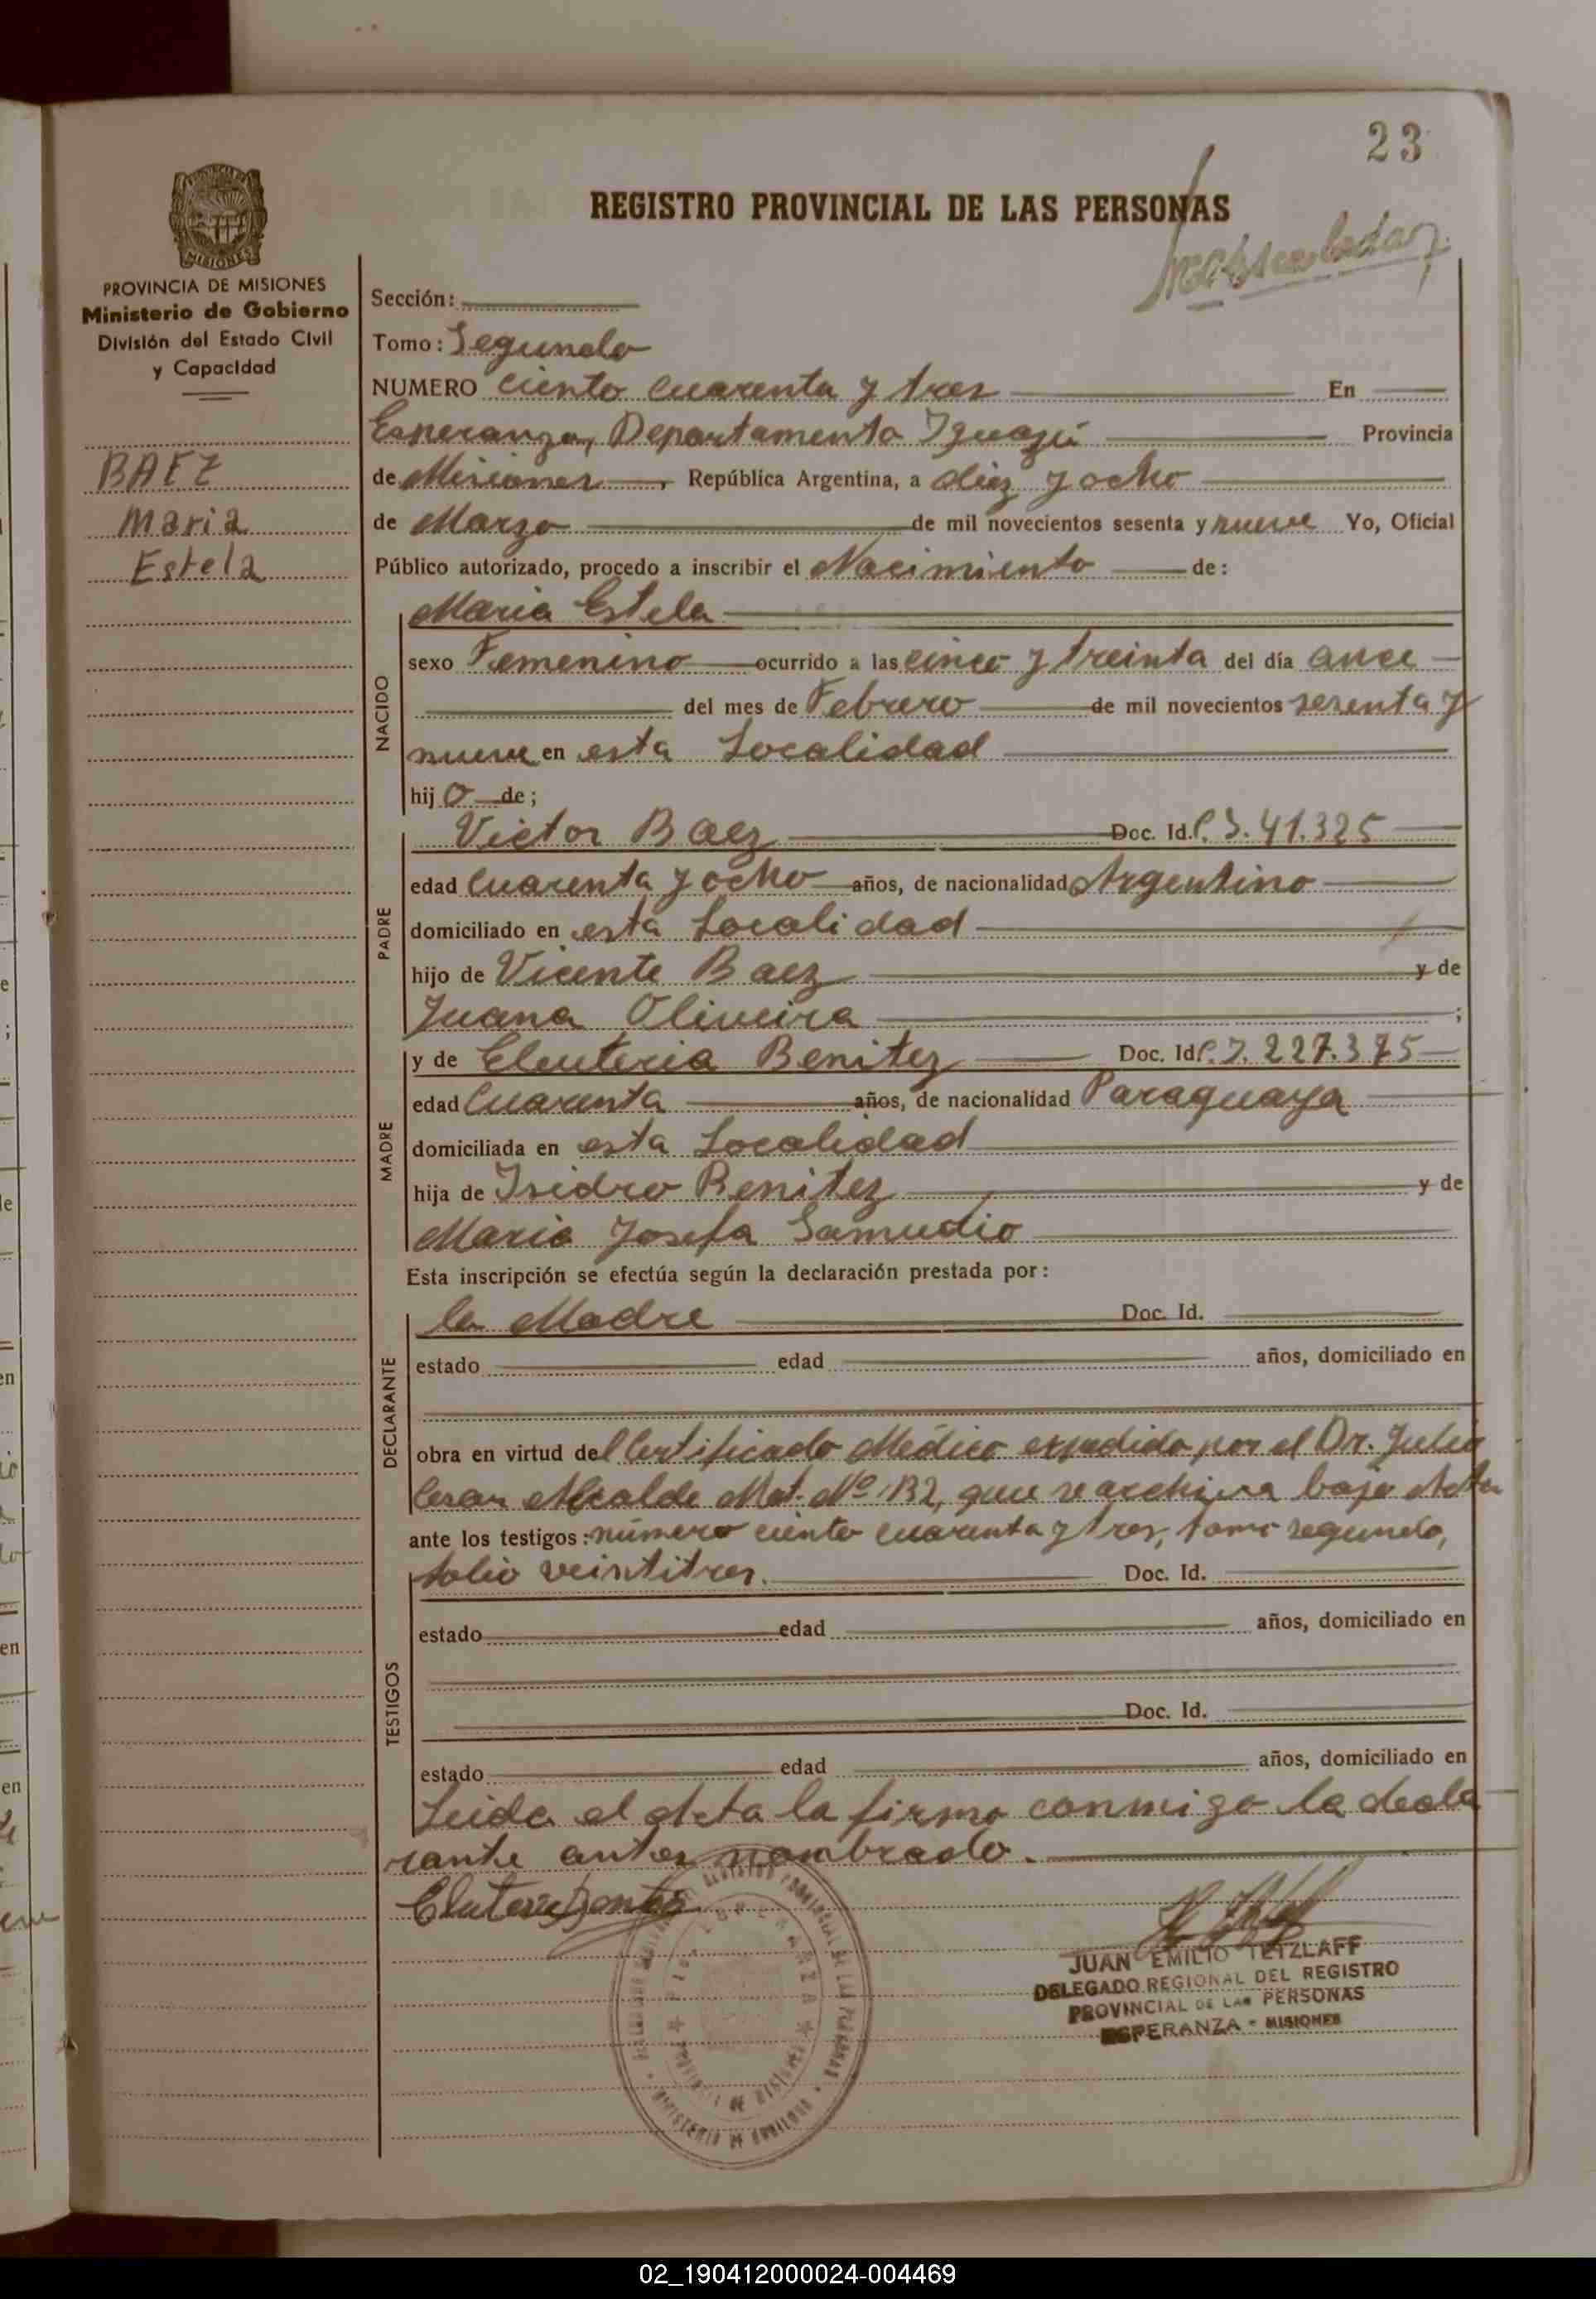 23
REGISTRO PROVINCIAL DE LAS PERSONAS
MISIONES
PROVINCIA DE MISIONES
Ministerio de Gobierno
División del Estado Civil
y Capacidad
BAEZ
Maria
Estela
Sección:
Tomo: Segundo
NUMERO Ciento Cuarenta y tres En
Esperanza, Departamento Iguazú Provincia
de Misiones, República Argentina, a diez y ocho
de Marzo de mil novecientos sesenta y nueve Yo, Oficial
Público autorizado, procedo a inscribir el Nacimiento de:
NACIDO
Maria Estela
sexo Femenino ocurrido a las cinco y treinta del día once
del mes de Febrero de mil novecientos sesenta y
nueve en esta Localidad
hijo de;
PADRE
Victor Baez Doc. Id. C.I. 41.325
edad Cuarenta y ocho años, de nacionalidad Argentino
domiciliado en esta Localidad
hijo de Vicente Baez y de
Juana Oliveira;
MADRE
y de Eleuteria Benitez Doc. Id. C.I. 227.375
edad Cuarenta años, de nacionalidad Paraguaya
domiciliada en esta Localidad
hija de Isidro Benitez y de
Maria Josefa Samudio
Esta inscripción se efectúa según la declaración prestada por:
DECLARANTE
la Madre Doc. Id.
estado edad años, domiciliado en
obra en virtud del Certificado Médico expedido por el Dr. Julio
Cesar Alcalde Mat. Nº 132, que se archiva bajo Acta
ante los testigos: número ciento cuarenta y tres, tomo segundo,
folio veintitres. Doc. Id.
TESTIGOS
estado edad años, domiciliado en
Doc. Id.
estado edad años, domiciliado en
Leida el Acta la firma conmigo la decla
rante antes nombrado.
JUAN EMILIO TETZLAFF
DELEGADO REGIONAL DEL REGISTRO
PROVINCIAL DE LAS PERSONAS
ESPERANZA - MISIONES
REGISTRO PROVINCIAL DE LAS PERSONAS
ESPERANZA
PROVINCIA DE MISIONES
MINISTERIO DE GOBIERNO
02_190412000024-004469